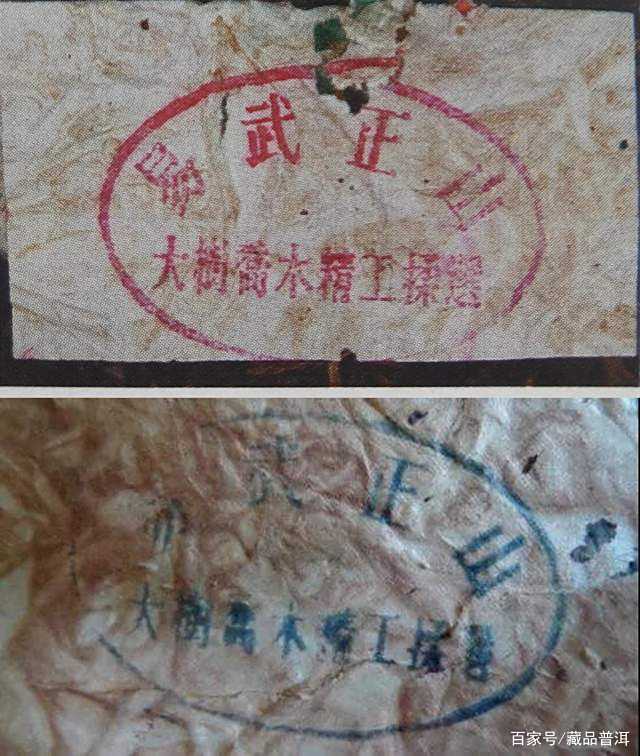 易武正山
大樹喬木精工揉選
武正山
大樹喬木精工揉選
百家号/藏品普洱